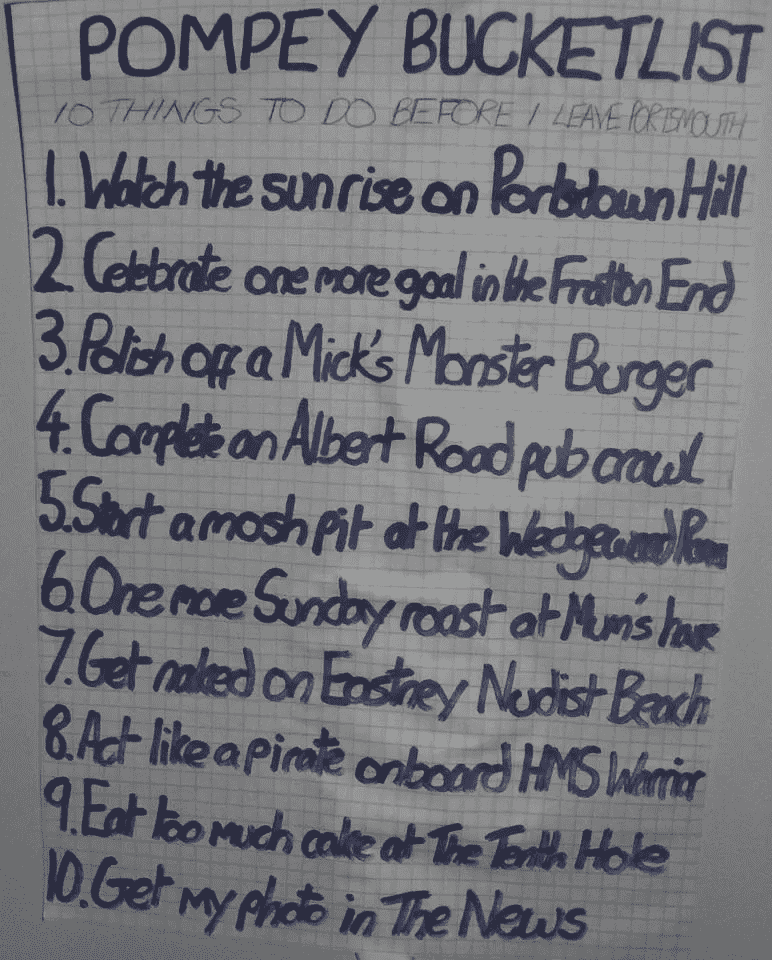 POMPEY BUCKETLIST
10 THINGS TO DO BEFORE I LEAVE PORTSMOUTH
1. Watch the sunrise on Portsdown Hill
2. Celebrate one more goal in the Fratton End
3. Polish off a Mick's Monster Burger
4. Complete an Albert Road pub crawl
5. Start a mosh pit at the Wedgewood Room
6. One more Sunday roast at Mum's house
7. Get naked on Eastney Nudist Beach
8. Act like a pirate onboard HMS Warrior
9. Eat too much cake at The Tenth Hole
10. Get my photo in The News